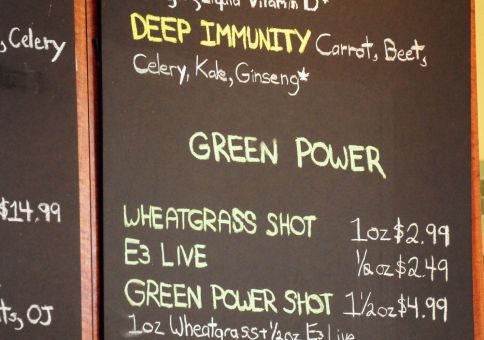 Liquid Vitamin D*
DEEP IMMUNITY Carrot, Beet,
Celery, Kale, Ginseng*
, Celery
GREEN POWER
$14.99
WHEATGRASS SHOT 1oz $2.99
E3 LIVE 1/2oz $2.49
GREEN POWER SHOT 1 1/2oz $4.99
1oz Wheatgrass + 1/2oz E3 Live
, OJ